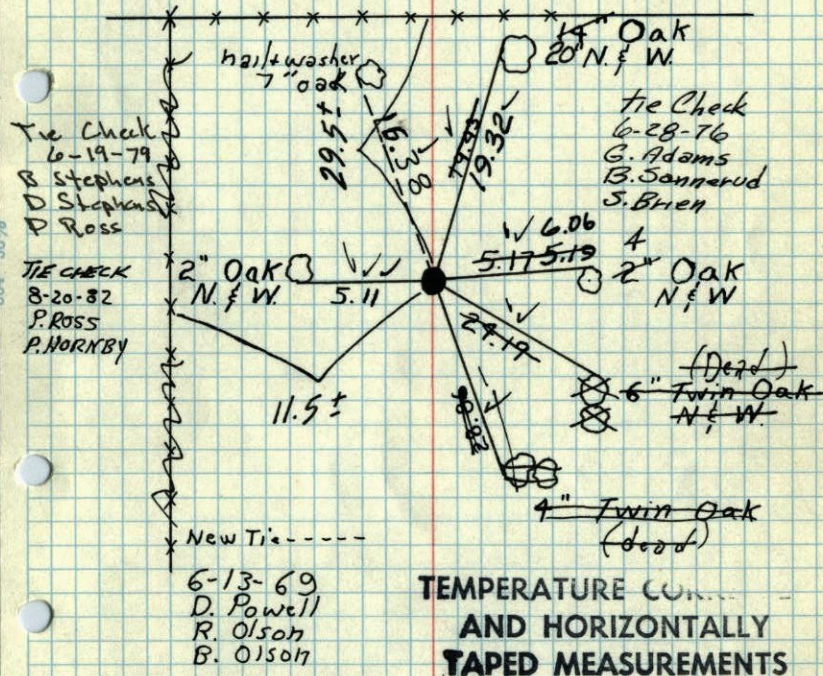 14" Oak
20" N. & W.
nail & washer
7" oak
29.5±
16.38
19.93
19.32
Tie Check
6-28-76
G. Adams
B. Sonnerud
S. Brien
Tie Check
6-19-79
B Stephens
D Stephens
D Ross
TIE CHECK
8-20-82
P. ROSS
P. HORNBY
2" Oak
N. & W.
5.11
6.06
5.17 5.19
4
2" Oak
N & W
24.19
(Dead)
6" Twin Oak
N & W.
11.5±
18.82
4" Twin Oak
(dead)
New Tie------
6-13-69
D. Powell
R. Olson
B. Olson
TEMPERATURE
AND HORIZONTALLY
TAPED MEASUREMENTS